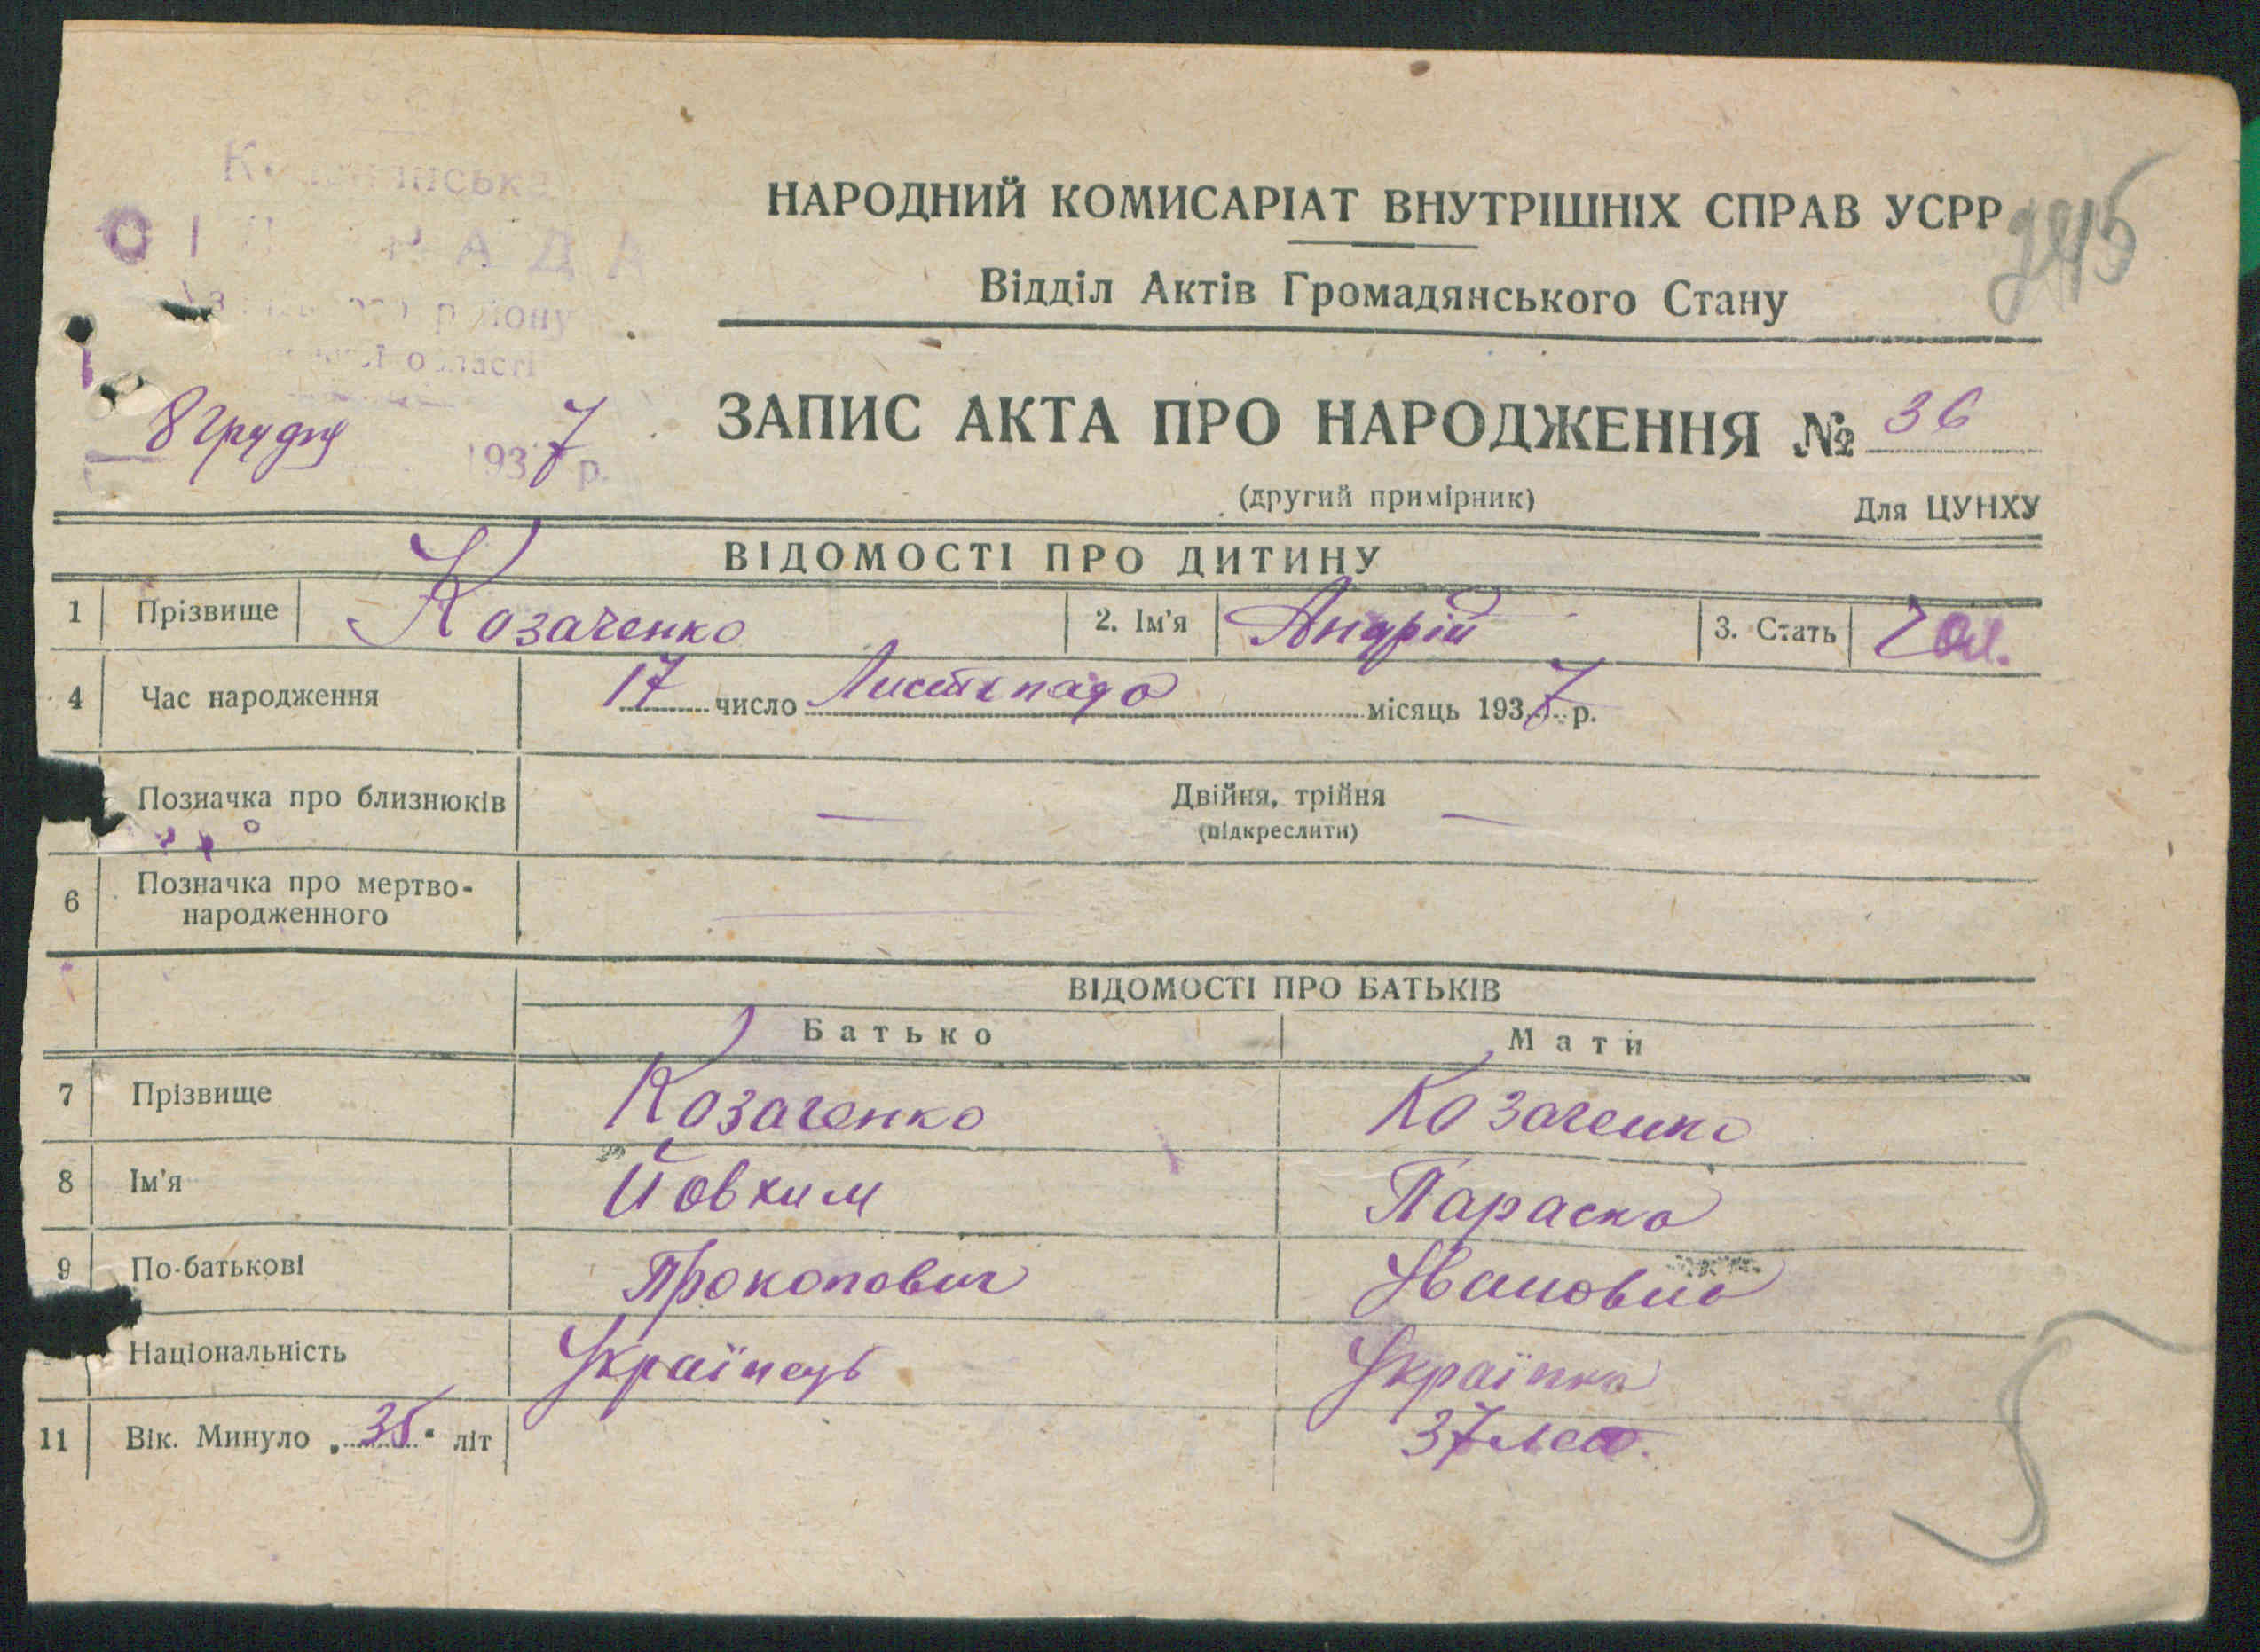 РАДА
району
області
8 Грудня 1937 р.
НАРОДНИЙ КОМИСАРІАТ ВНУТРІШНІХ СПРАВ УСРР
245
Відділ Актів Громадянського Стану
ЗАПИС АКТА ПРО НАРОДЖЕННЯ № 36
(другий примірник) Для ЦУНХУ
ВІДОМОСТІ ПРО ДИТИНУ
1 Прізвище Козаченко 2. Ім'я Андрій 3. Стать Чол.
4 Час народження 17 число Листопада місяць 1937 р.
Позначка про близнюків — Двійня, трійня —
(підкреслити)
6 Позначка про мертво-
народженного —
ВІДОМОСТІ ПРО БАТЬКІВ
Батько Мати
7 Прізвище Козаченко Козаченко
8 Ім'я Йовхим Параска
9 По-батькові Прокопович Івановна
Національність Українець Українка
11 Вік. Минуло „35" літ 37 лет.